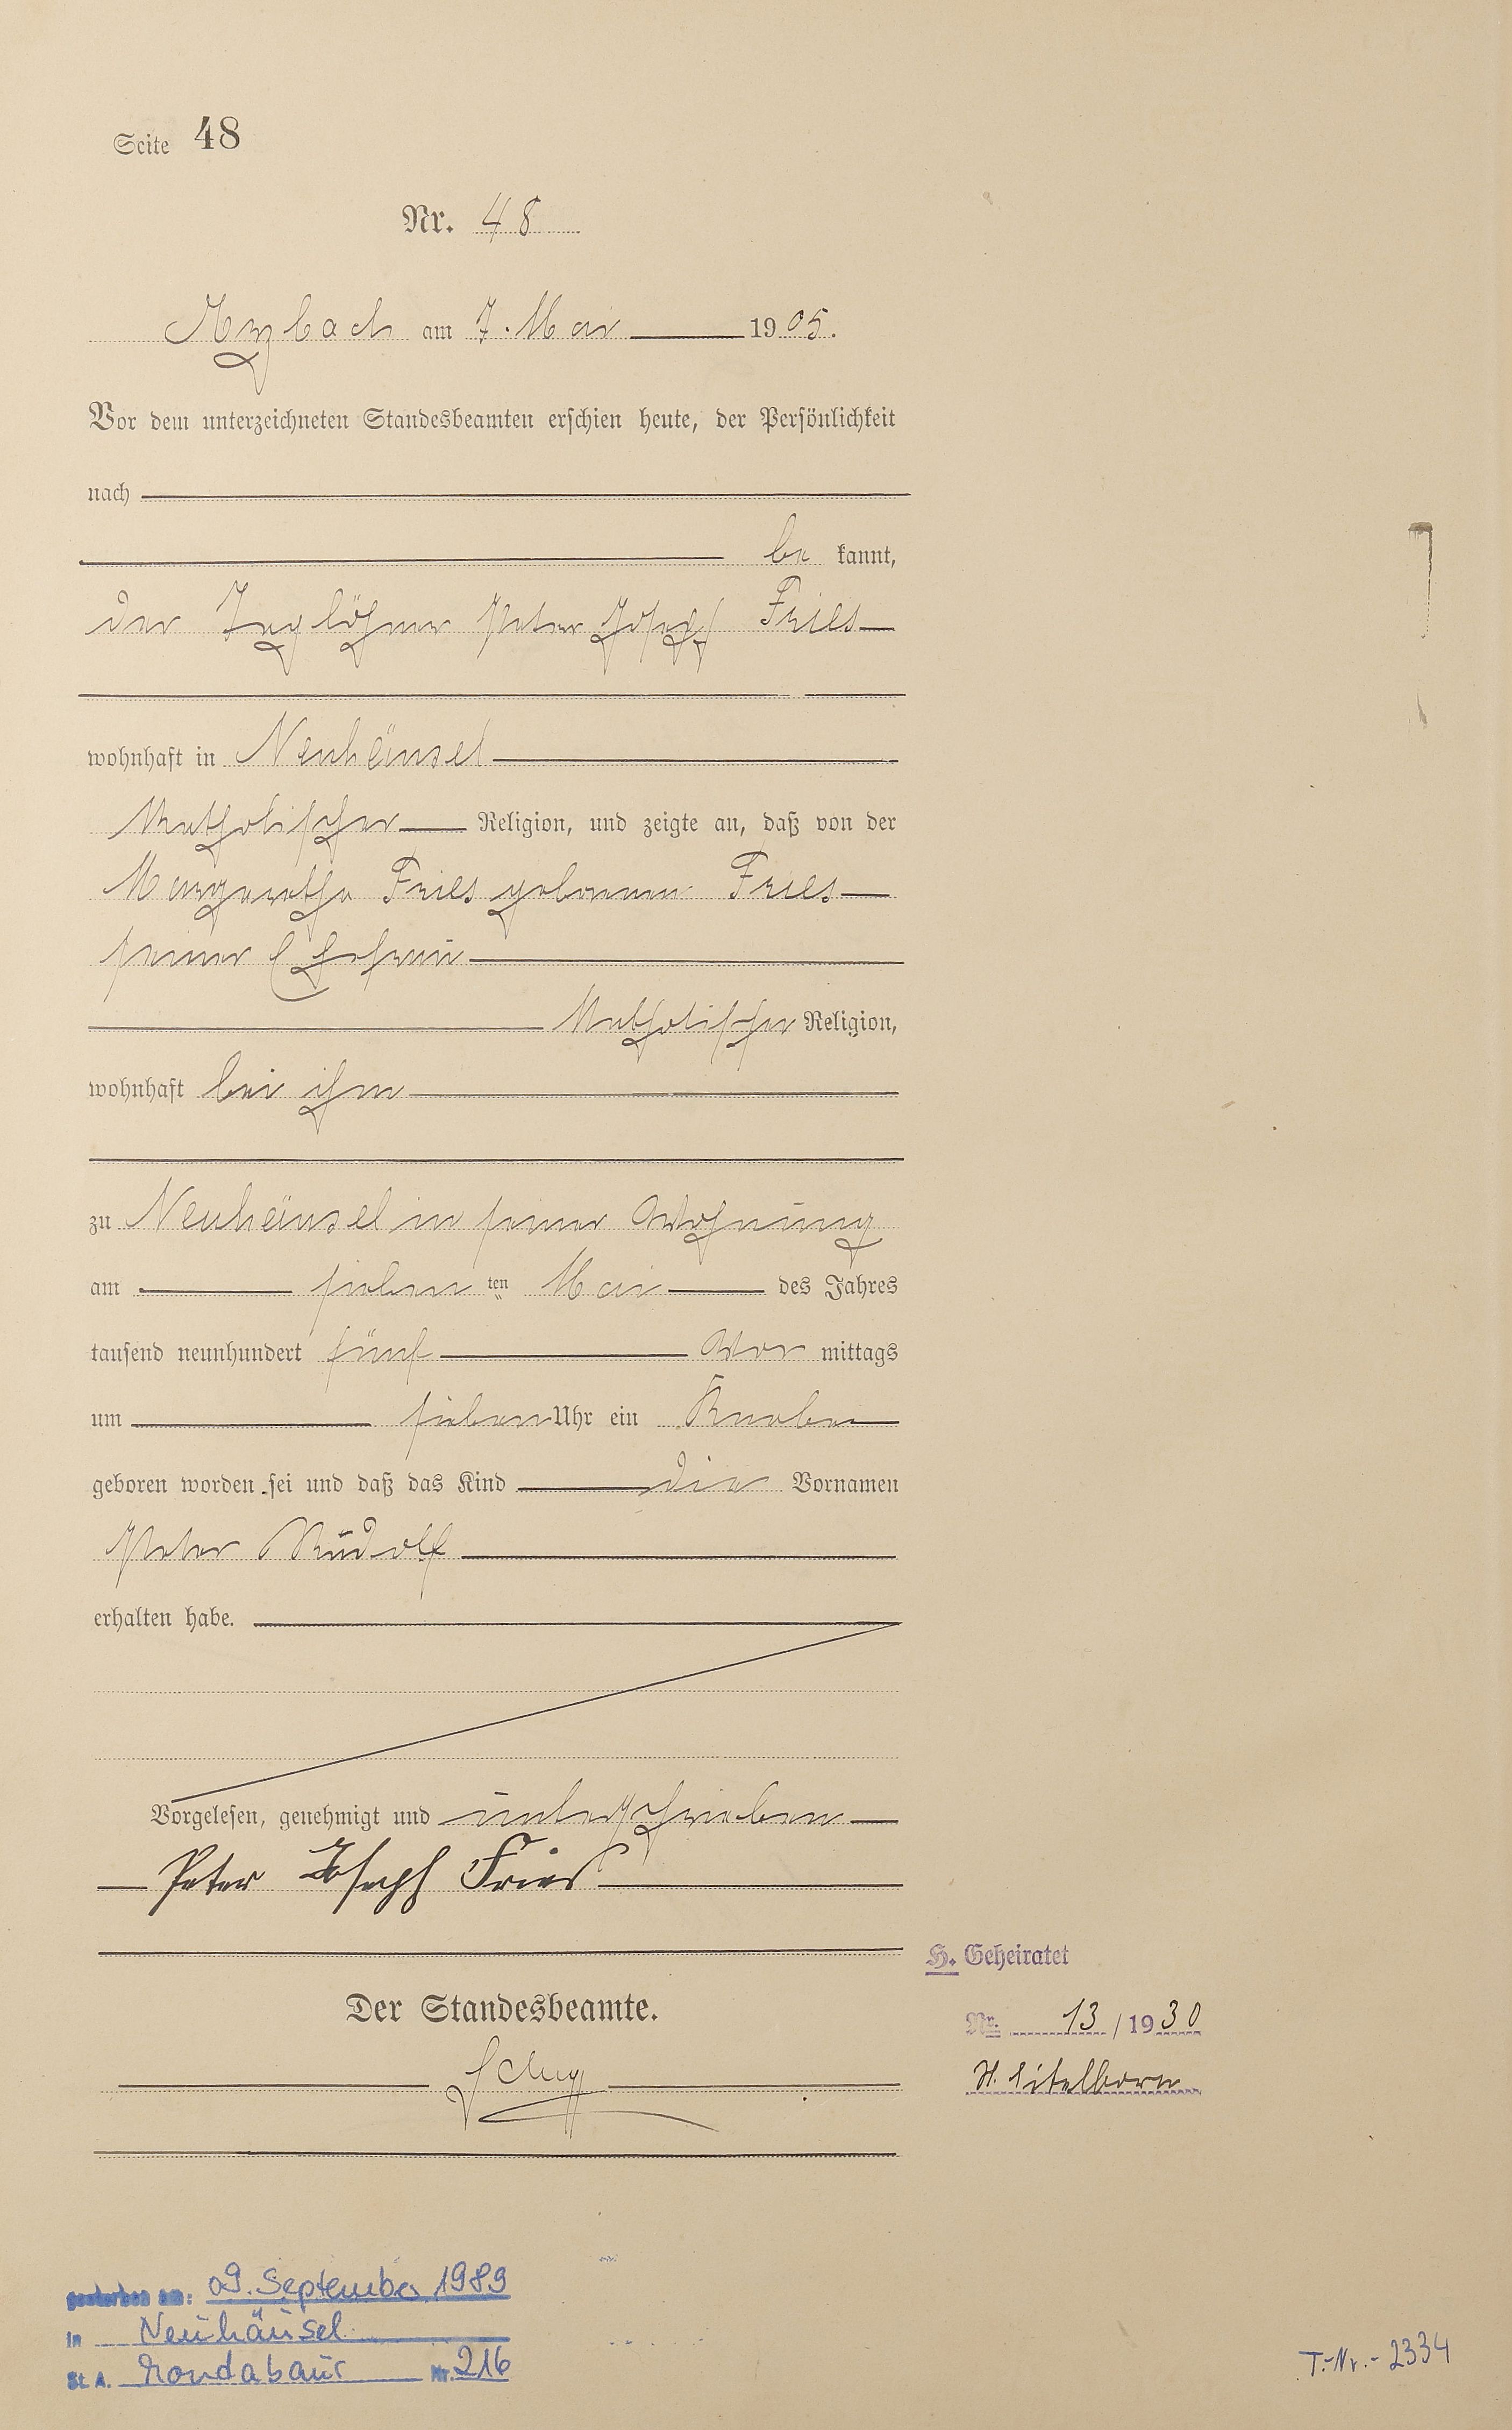 Seite 48
Nr. 48
Arzbach am 7. Mai 1905.
Vor dem unterzeichneten Standesbeamten erschien heute, der Persönlichkeit
nach
be kannt,
der Taglöhner Peter Josef Fries
wohnhaft in Neuhäusel
Katholischer Religion, und zeigte an, daß von der
Margaretha Fries geborenen Fries
seiner Ehefrau
Katholischer Religion,
wohnhaft bei ihm
zu Neuhäusel in seiner Wohnung
am sieben ten Mai des Jahres
tausend neunhundert fünf Vor mittags
um sieben Uhr ein Knabe
geboren worden sei und daß das Kind die Vornamen
Peter Rudolf
erhalten habe.
Vorgelesen, genehmigt und unterschrieben
Peter Joseph Fries
Der Standesbeamte.
H. Geheiratet
Nr. 13 / 1930
gestorben am: 09. September 1989
in Neuhäusel
St. A. Montabaur Nr. 216
T.-Nr.- 2334